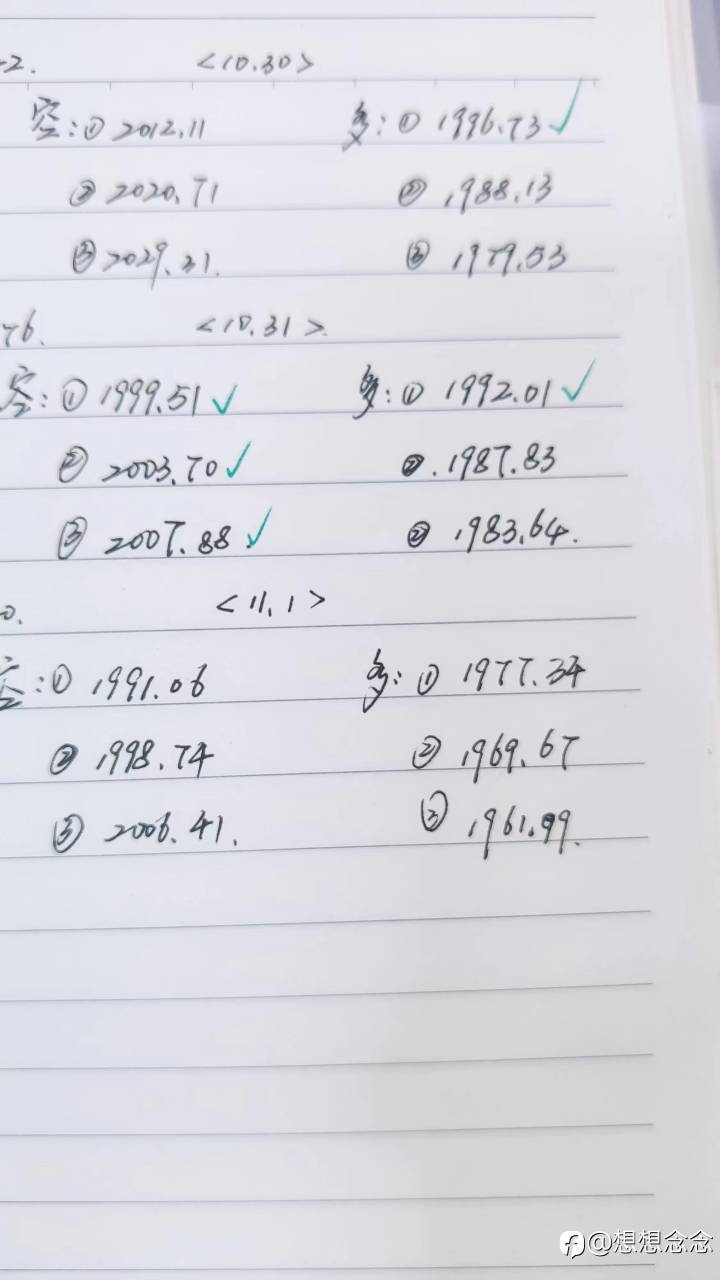 -2. <10.30>
空:① 2012.11 多:① 1996.73 ✓
② 2020.71 ② 1988.13
③ 2029.31. ③ 1979.53
76. <10.31>.
空:① 1999.51 ✓ 多:① 1992.01 ✓
② 2003.70 ✓ ②. 1987.83
③ 2007.88 ✓ ③ 1983.64.
0. <11.1>
空:① 1991.06 多:① 1977.34
② 1998.74 ② 1969.67
③ 2006.41. ③ 1961.99.
@想想念念